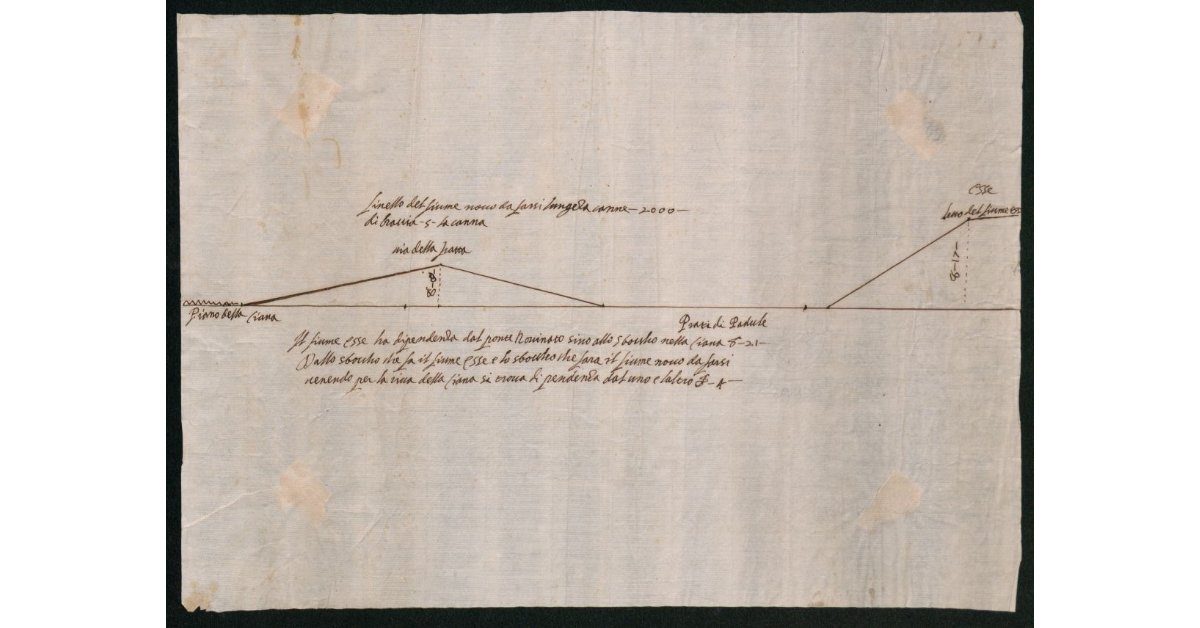 esse
liuello del fiume nouo da farsi lungeza canne - 2000 -
di bracia - 5 - la canna
letto del fiume esse
uia della
B - 8
B - 17 -
Piano della Ciana
Prata di Padule
Il fiume esse ha dipendenza dal ponte Rouinato sino allo sboccho nella Ciana B - 21 -
Dallo sboccho che fa il fiume esse e lo sboccho che fara il fiume nouo da farsi
uenendo per la riua della Ciana si troua di pendenza dal uno e laltro B - 4 -